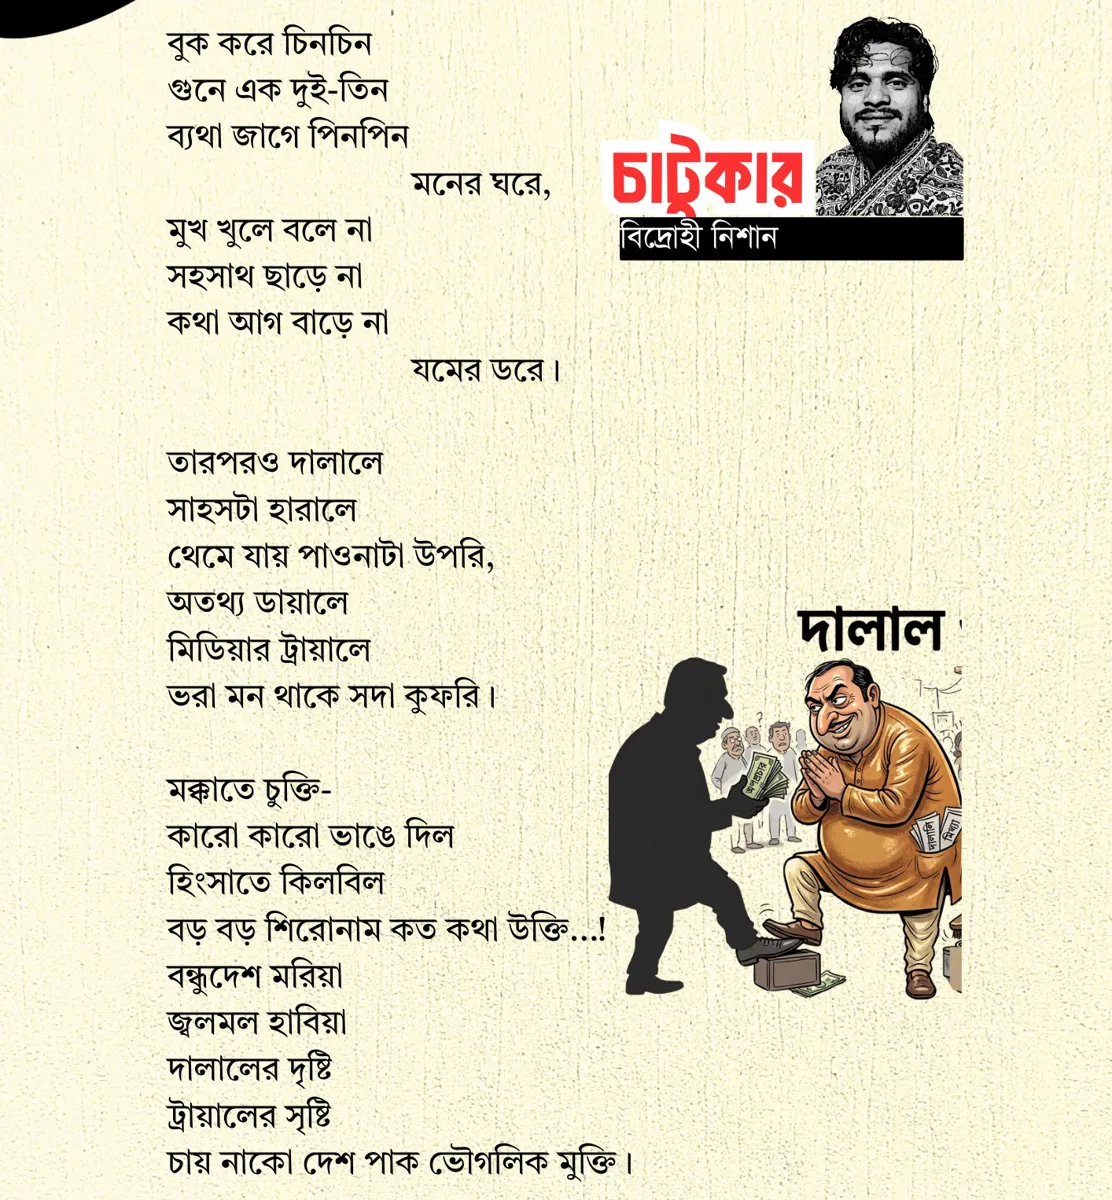 চাটুকার
বিদ্রোহী নিশান
বুক করে চিনচিন
গুনে এক দুই-তিন
ব্যথা জাগে পিনপিন
মনের ঘরে,
মুখ খুলে বলে না
সহসাথ ছাড়ে না
কথা আগ বাড়ে না
যমের ডরে।
তারপরও দালালে
সাহসটা হারালে
থেমে যায় পাওনাটা উপরি,
অতথ্য ডায়ালে
মিডিয়ার ট্রায়ালে
ভরা মন থাকে সদা কুফরি।
মক্কাতে চুক্তি-
কারো কারো ভাঙে দিল
হিংসাতে কিলবিল
বড় বড় শিরোনাম কত কথা উক্তি...!
বন্ধুদেশ মরিয়া
জ্বলমল হাবিয়া
দালালের দৃষ্টি
ট্রায়ালের সৃষ্টি
চায় নাকো দেশ পাক ভৌগলিক মুক্তি।
দালাল
অপপ্রচার
মিথ্যা